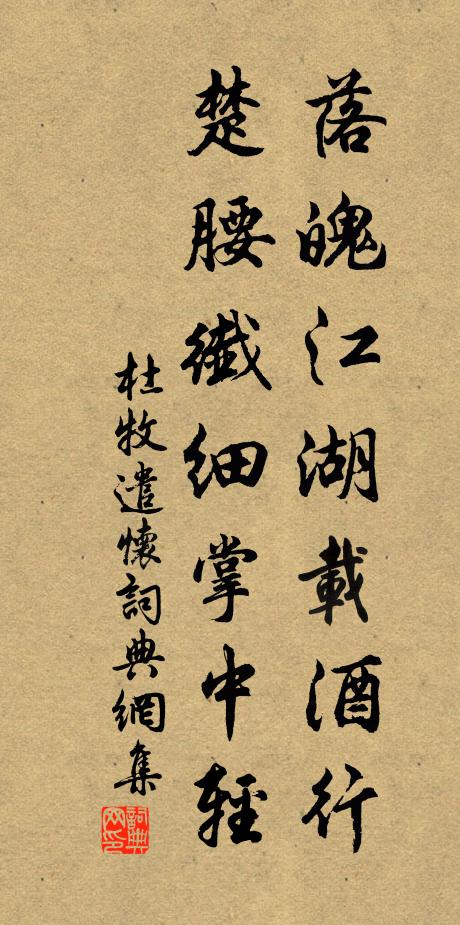 落魄江湖載酒行
楚腰纖細掌中輕
杜牧遣懷詞典網集
詞典网印